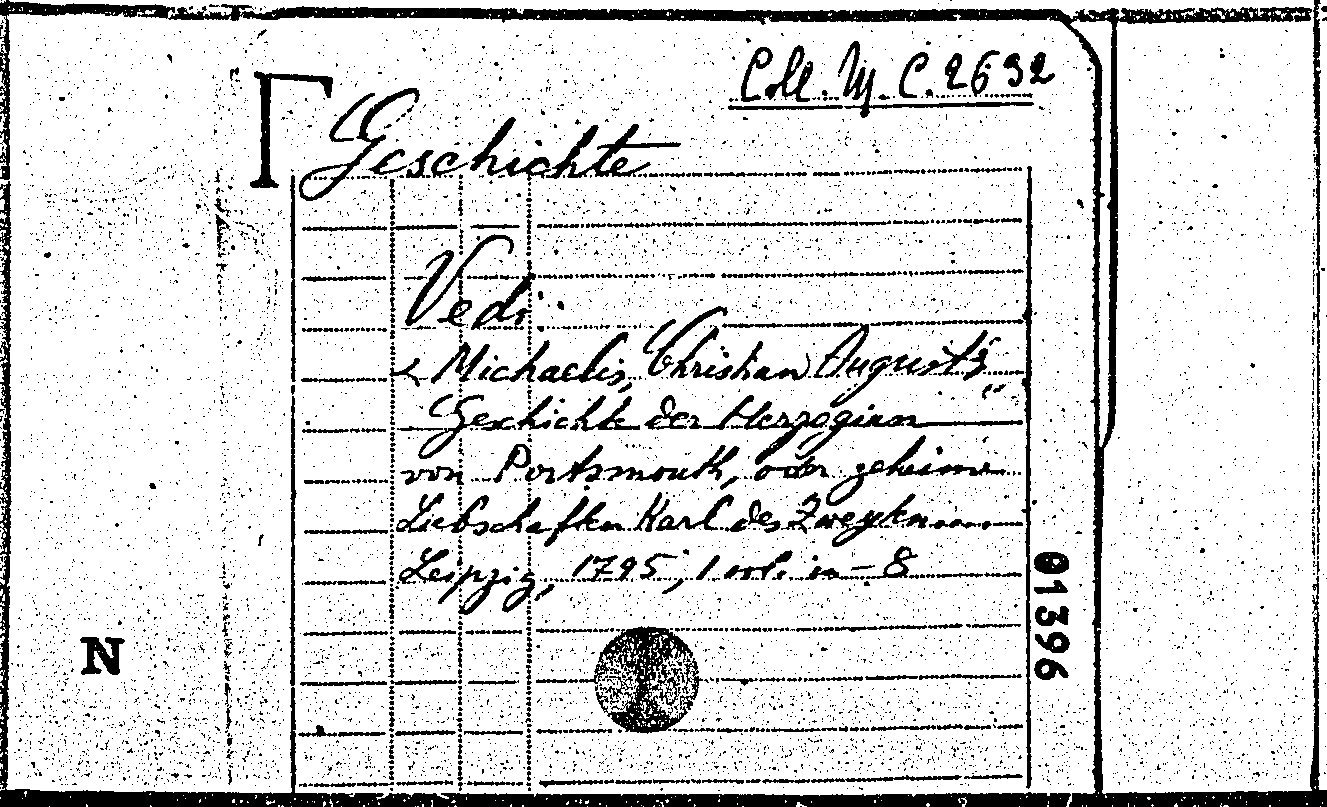 Coll. M. C. 2632
Geschichte
Vedi:
< Michaelis, Christian August's
Geschichte der Herzoginn
von Portsmouth, oder geheime
Liebschaften Karl des Zweyten....
Leipzig, 1795, 1 vol. in-8
01396
N